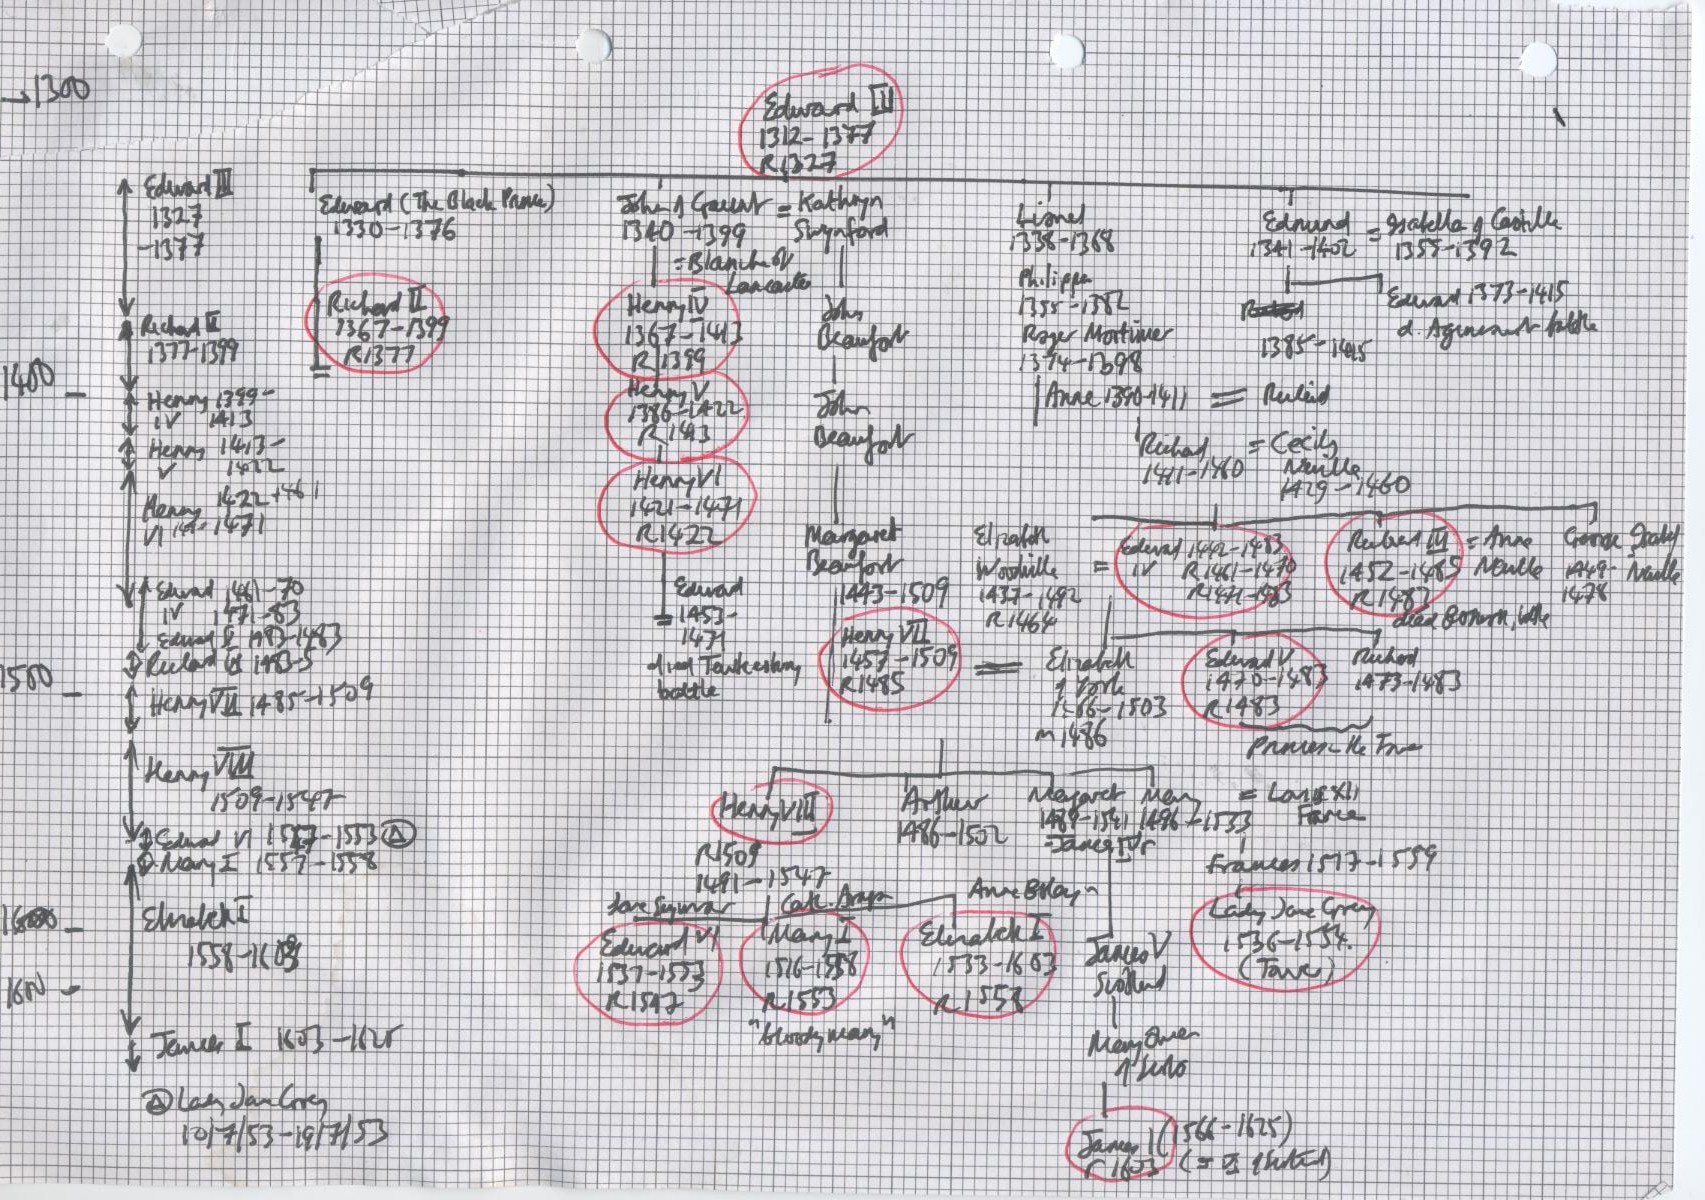 →1300
Edward III
1312-1377
R1327
Edward III
1327
-1377
Richard II
1377-1399
1400
Henry 1399-
IV 1413
Henry 1413-
V 1422
Henry 1422-1461
VI 1471
Edward 1461-70
IV 1471-83
Edward V 1483-1483
Richard III 1483-5
1500
Henry VII 1485-1509
Henry VIII
1509-1547
Edward VI 1553 Ⓐ
Mary I 1558
Elizabeth I
1558-1603
1600
James I 1603-1625
Ⓐ Lady Jane Grey
10/7/53-19/7/53
Edward (The Black Prince)
1330-1376
Richard II
1367-1399
R1377
John of Gaunt = Kathryn
1340-1399 Swynford
= Blanche of
Lancaster
Henry IV
1367-1413
R1399
Henry V
1386-1422
R1413
Henry VI
1421-1471
R1422
Edward
1453-
1471
died Tewkesbury
battle
John
Beaufort
John
Beaufort
Margaret
Beaufort
1443-1509
Henry VII
1457-1509
R1485
Lionel
1338-1368
Philippa
1355-1382
Roger Mortimer
1374-1398
Anne 1390-1411 = Richard
1385-1415
Edmund = Isabella of Castille
1341-1402 1355-1392
Edward 1373-1415
d. Agincourt battle
Richard = Cecily
1411-1460 Neville
1429-1460
Elizabeth
Woodville =
1437-1492
R1464
Edward 1442-1483
IV R1461-1470
R1471-1483
Richard III = Anne
1452-1485 Neville
R1483
died Bosworth battle
George Isabel
1449- Neville
1478
= Elizabeth
of York
1466-1503
m 1486
Edward V
1470-1483
R1483
Richard
1473-1483
Princes in the Tower
Henry VIII
R1509
1491-1547
Arthur
1486-1502
Margaret
1489-1541
= James IV
Mary = Louis XII
1496-1533 France
Frances 1517-1559
Lady Jane Grey
1536-1554
(Tower)
Jane Seymour
Cath. Aragon
Anne Boleyn
Edward VI
1537-1553
R1547
Mary I
1516-1558
R1553
"bloody mary"
Elizabeth I
1533-1603
R1558
James V
Scotland
Mary Queen
of Scots
James I (1566-1625)
R1603 (= VI of Scotland)